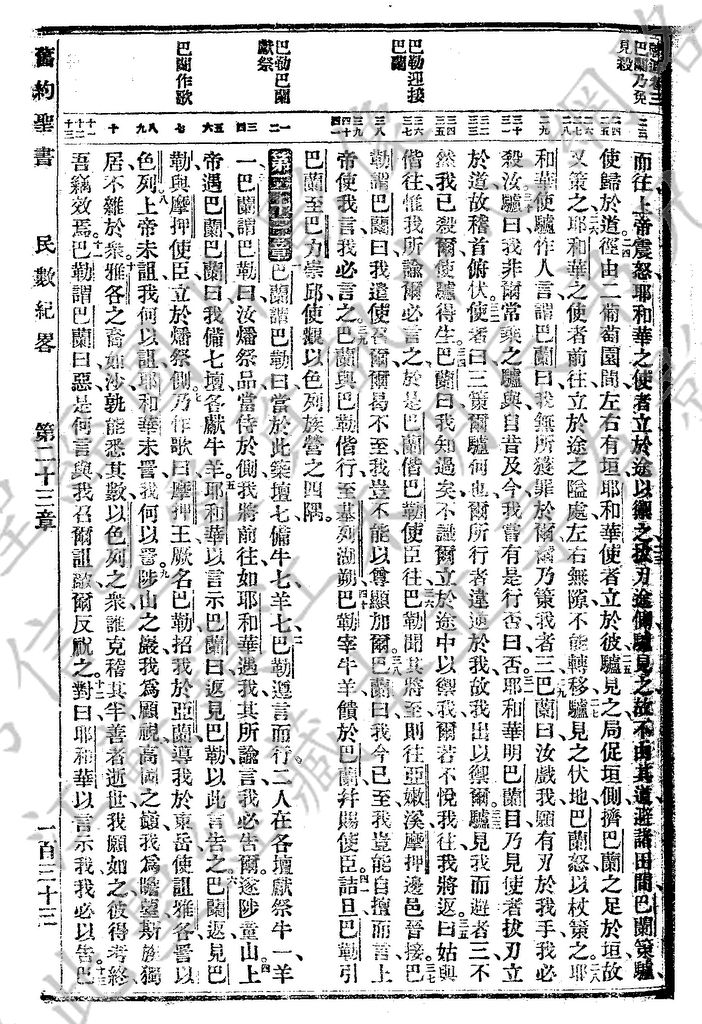 巴蘭乃免見殺
巴勒迎接巴蘭
巴勒巴蘭獻祭
巴蘭作歌
而往上帝震怒耶和華之使者立於途以禦之拔刃途側驢見之故不由其道避諸田間巴蘭策驢
使歸於道徑由二葡萄園間左右有垣耶和華使者立於彼驢見之局促垣側擠巴蘭之足於垣故
又策之耶和華之使者前往立於途之隘處左右無隙不能轉移驢見之伏地巴蘭怒以杖策之耶
和華使驢作人言謂巴蘭曰我無所獲罪於爾爾乃策我者三巴蘭曰汝戲我願有刃於我手我必
殺汝驢曰我非爾常乘之驢與自昔及今我嘗有是行否曰否耶和華明巴蘭目乃見使者拔刃立
於道故稽首俯伏使者曰三策爾驢何也爾所行者違逆於我故我出以禦爾驢見我而避者三不
然我已殺爾使驢得生巴蘭曰我知過矣不識爾立於途中以禦我爾若不悅我往我將返曰姑與
偕往惟我所諭爾必言之於是巴蘭偕巴勒使臣往巴勒聞其將至則往亞嫩溪摩押邊邑晉接巴
勒謂巴蘭曰我遣使召爾爾曷不至我豈不能以尊顯加爾巴蘭曰我今已至我豈能自擅而言上
帝使我言我必言之巴蘭與巴勒偕行至基列湖朔巴勒宰牛羊饋於巴蘭幷賜使臣詰旦巴勒引
巴蘭至巴力崇邱使觀以色列族營之四隅
第二十三章巴蘭謂巴勒曰當於此築壇七備牛七羊七巴勒遵言而行二人在各壇獻祭牛一羊
一巴蘭謂巴勒曰汝燔祭品當侍於側我將前往如耶和華遇我其所諭言我必告爾遂陟童山上
帝遇巴蘭巴蘭曰我備七壇各獻牛羊耶和華以言示巴蘭曰返見巴勒以此言告之巴蘭返見巴
勒與摩押使臣立於燔祭側乃作歌曰摩押王厥名巴勒招我於亞蘭導我於東岳使詛雅各詈以
色列上帝未詛我何以詛耶和華未詈我何以詈陟山之巖我為顧視高岡之巔我為瞻望斯族獨
居不雜於衆雅各之裔如沙孰能悉其數以色列之衆誰克稽其半善者逝世我願如之彼得考終
吾竊效焉巴勒謂巴蘭曰惡是何言與我召爾詛敵爾反祝之對曰耶和華以言示我我必以告巴
舊約聖書 民數紀畧 第二十三章 一百三十三